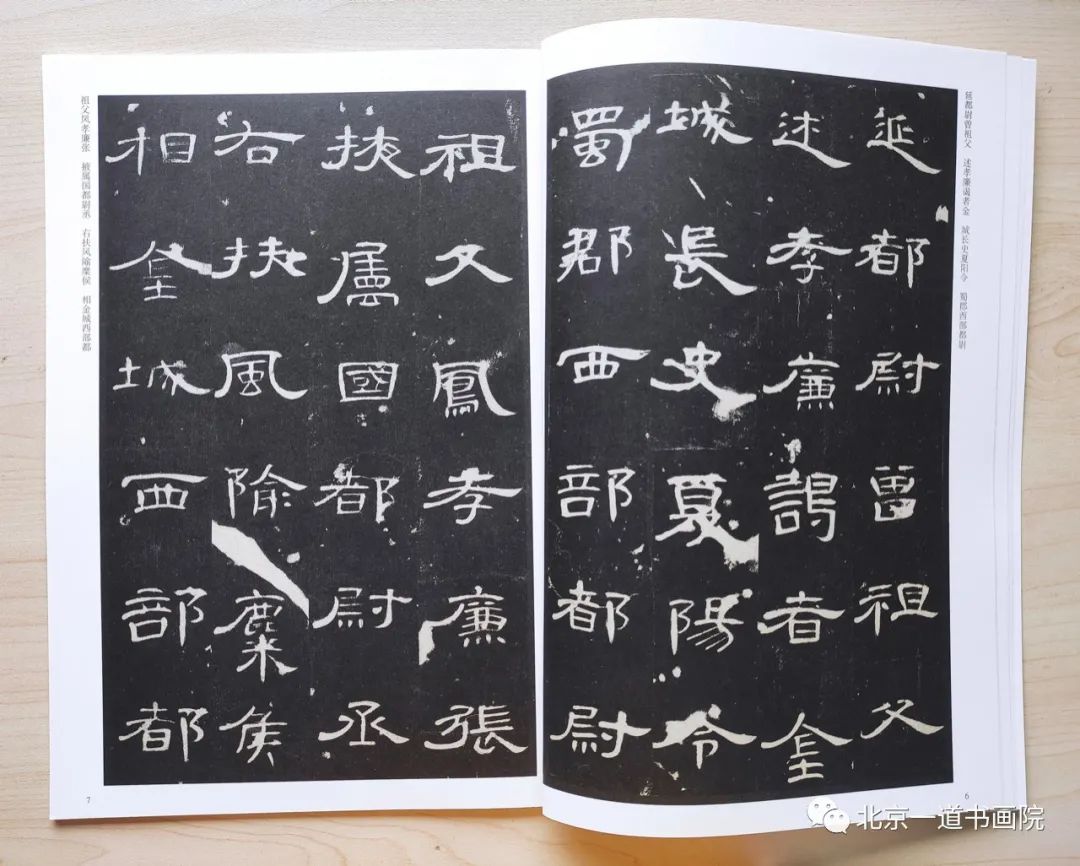 延都尉曾祖父　述孝廉谒者金　城长史夏阳令　蜀郡西部都尉
延都尉曾祖父
述孝廉謁者金
城長史夏陽令
蜀郡西部都尉
6
祖父鳳孝廉張
掖屬國都尉丞
右扶風隃麋侯
相金城西部都
祖父凤孝廉张　掖属国都尉丞　右扶风隃糜侯　相金城西部都
7
北京一道书画院